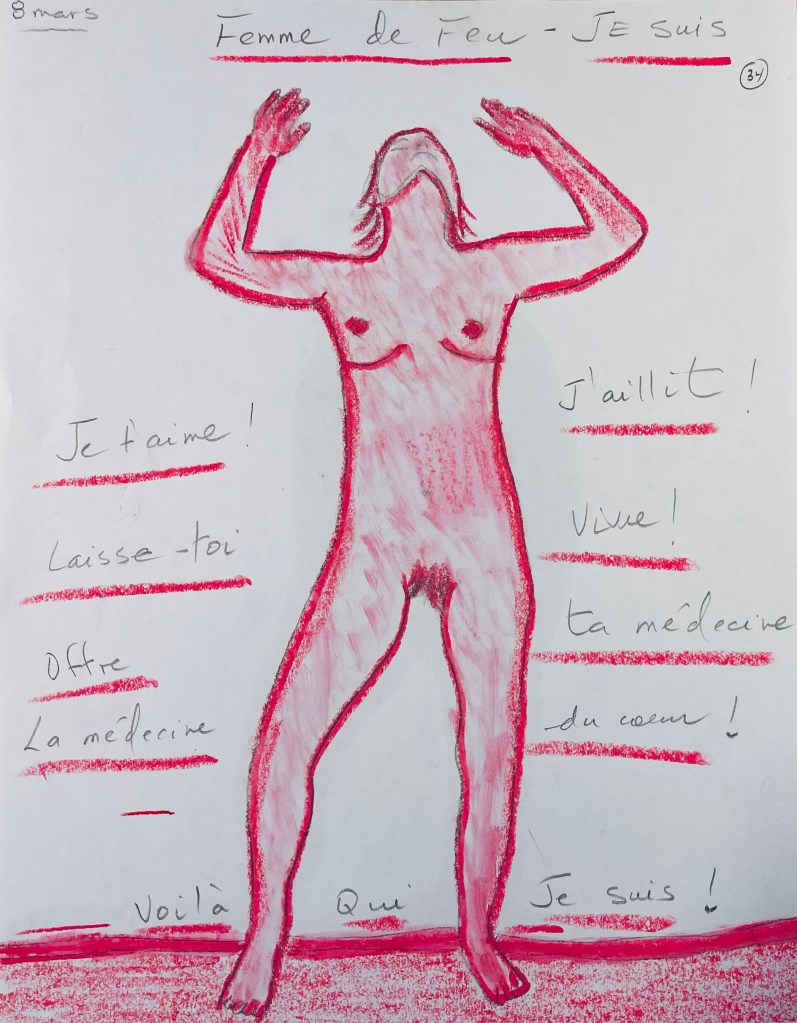 8 mars
Femme de Feu - JE suis
34
Je t'aime !
J'aillit !
Laisse-toi
Vivre !
Offre
ta médecine
La médecine
du coeur !
Voilà Qui Je suis !